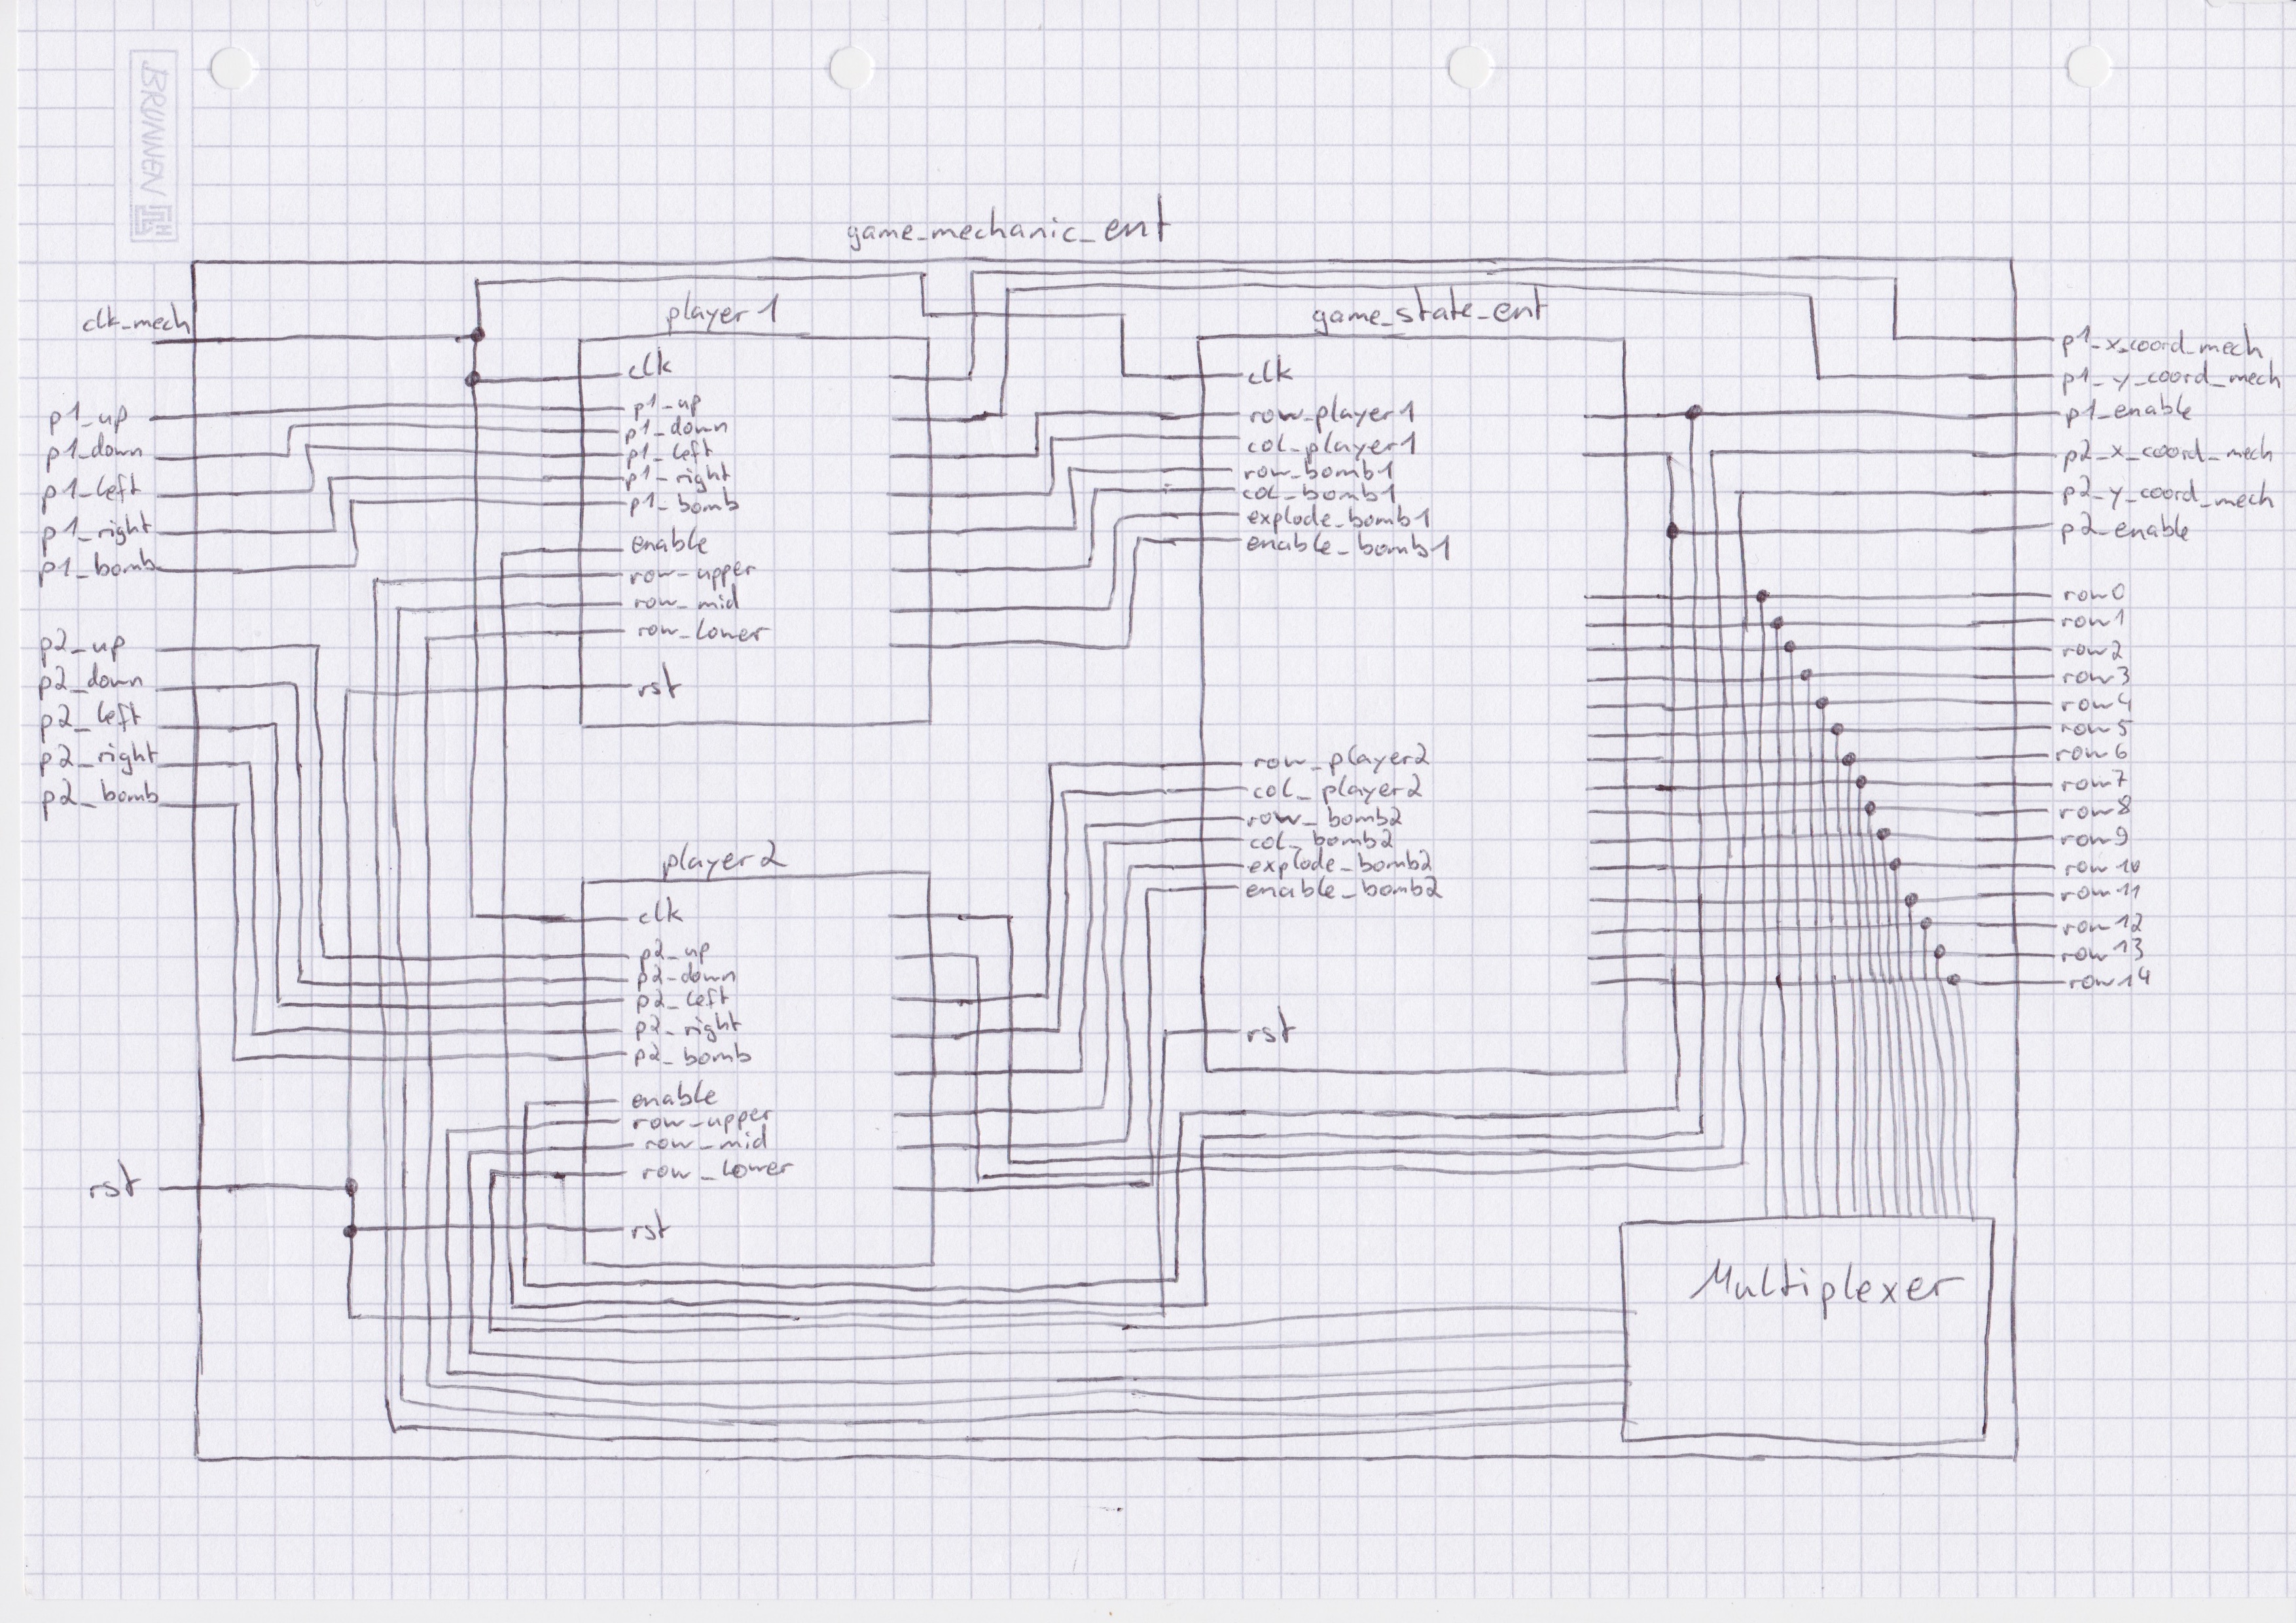 BRUNNEN
game_mechanic_ent
clk_mech
p1_up
p1_down
p1_left
p1_right
p1_bomb
p2_up
p2_down
p2_left
p2_right
p2_bomb
rst
player1
clk
p1_up
p1_down
p1_left
p1_right
p1_bomb
enable
row_upper
row_mid
row_lower
rst
player2
clk
p2_up
p2_down
p2_left
p2_right
p2_bomb
enable
row_upper
row_mid
row_lower
rst
game_state_ent
clk
row_player1
col_player1
row_bomb1
col_bomb1
explode_bomb1
enable_bomb1
row_player2
col_player2
row_bomb2
col_bomb2
explode_bomb2
enable_bomb2
rst
p1_x_coord_mech
p1_y_coord_mech
p1_enable
p2_x_coord_mech
p2_y_coord_mech
p2_enable
row0
row1
row2
row3
row4
row5
row6
row7
row8
row9
row10
row11
row12
row13
row14
Multiplexer